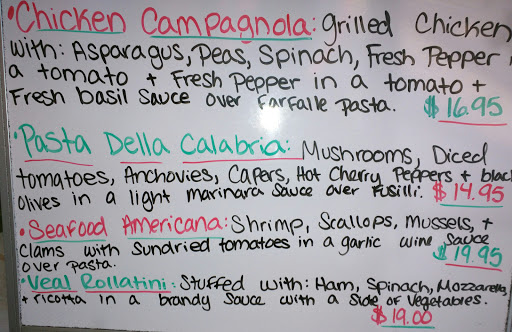 •Chicken Campagnola: grilled Chicken
with: Asparagus, Peas, Spinach, Fresh Pepper
a tomato + Fresh Pepper in a tomato +
Fresh basil Sauce over Farfalle Pasta. $16.95
•Pasta Della Calabria: Mushrooms, Diced
tomatoes, Anchovies, Capers, Hot Cherry Peppers + black
Olives in a light marinara Sauce over Fusilli. $14.95
•Seafood Americana: Shrimp, Scallops, Mussels, +
Clams with Sundried tomatoes in a garlic wine Sauce
over pasta. $19.95
•Veal Rollatini: Stuffed with: Ham, Spinach, Mozzarella,
+ ricotta in a brandy Sauce with a Side of Vegetables.
$19.00